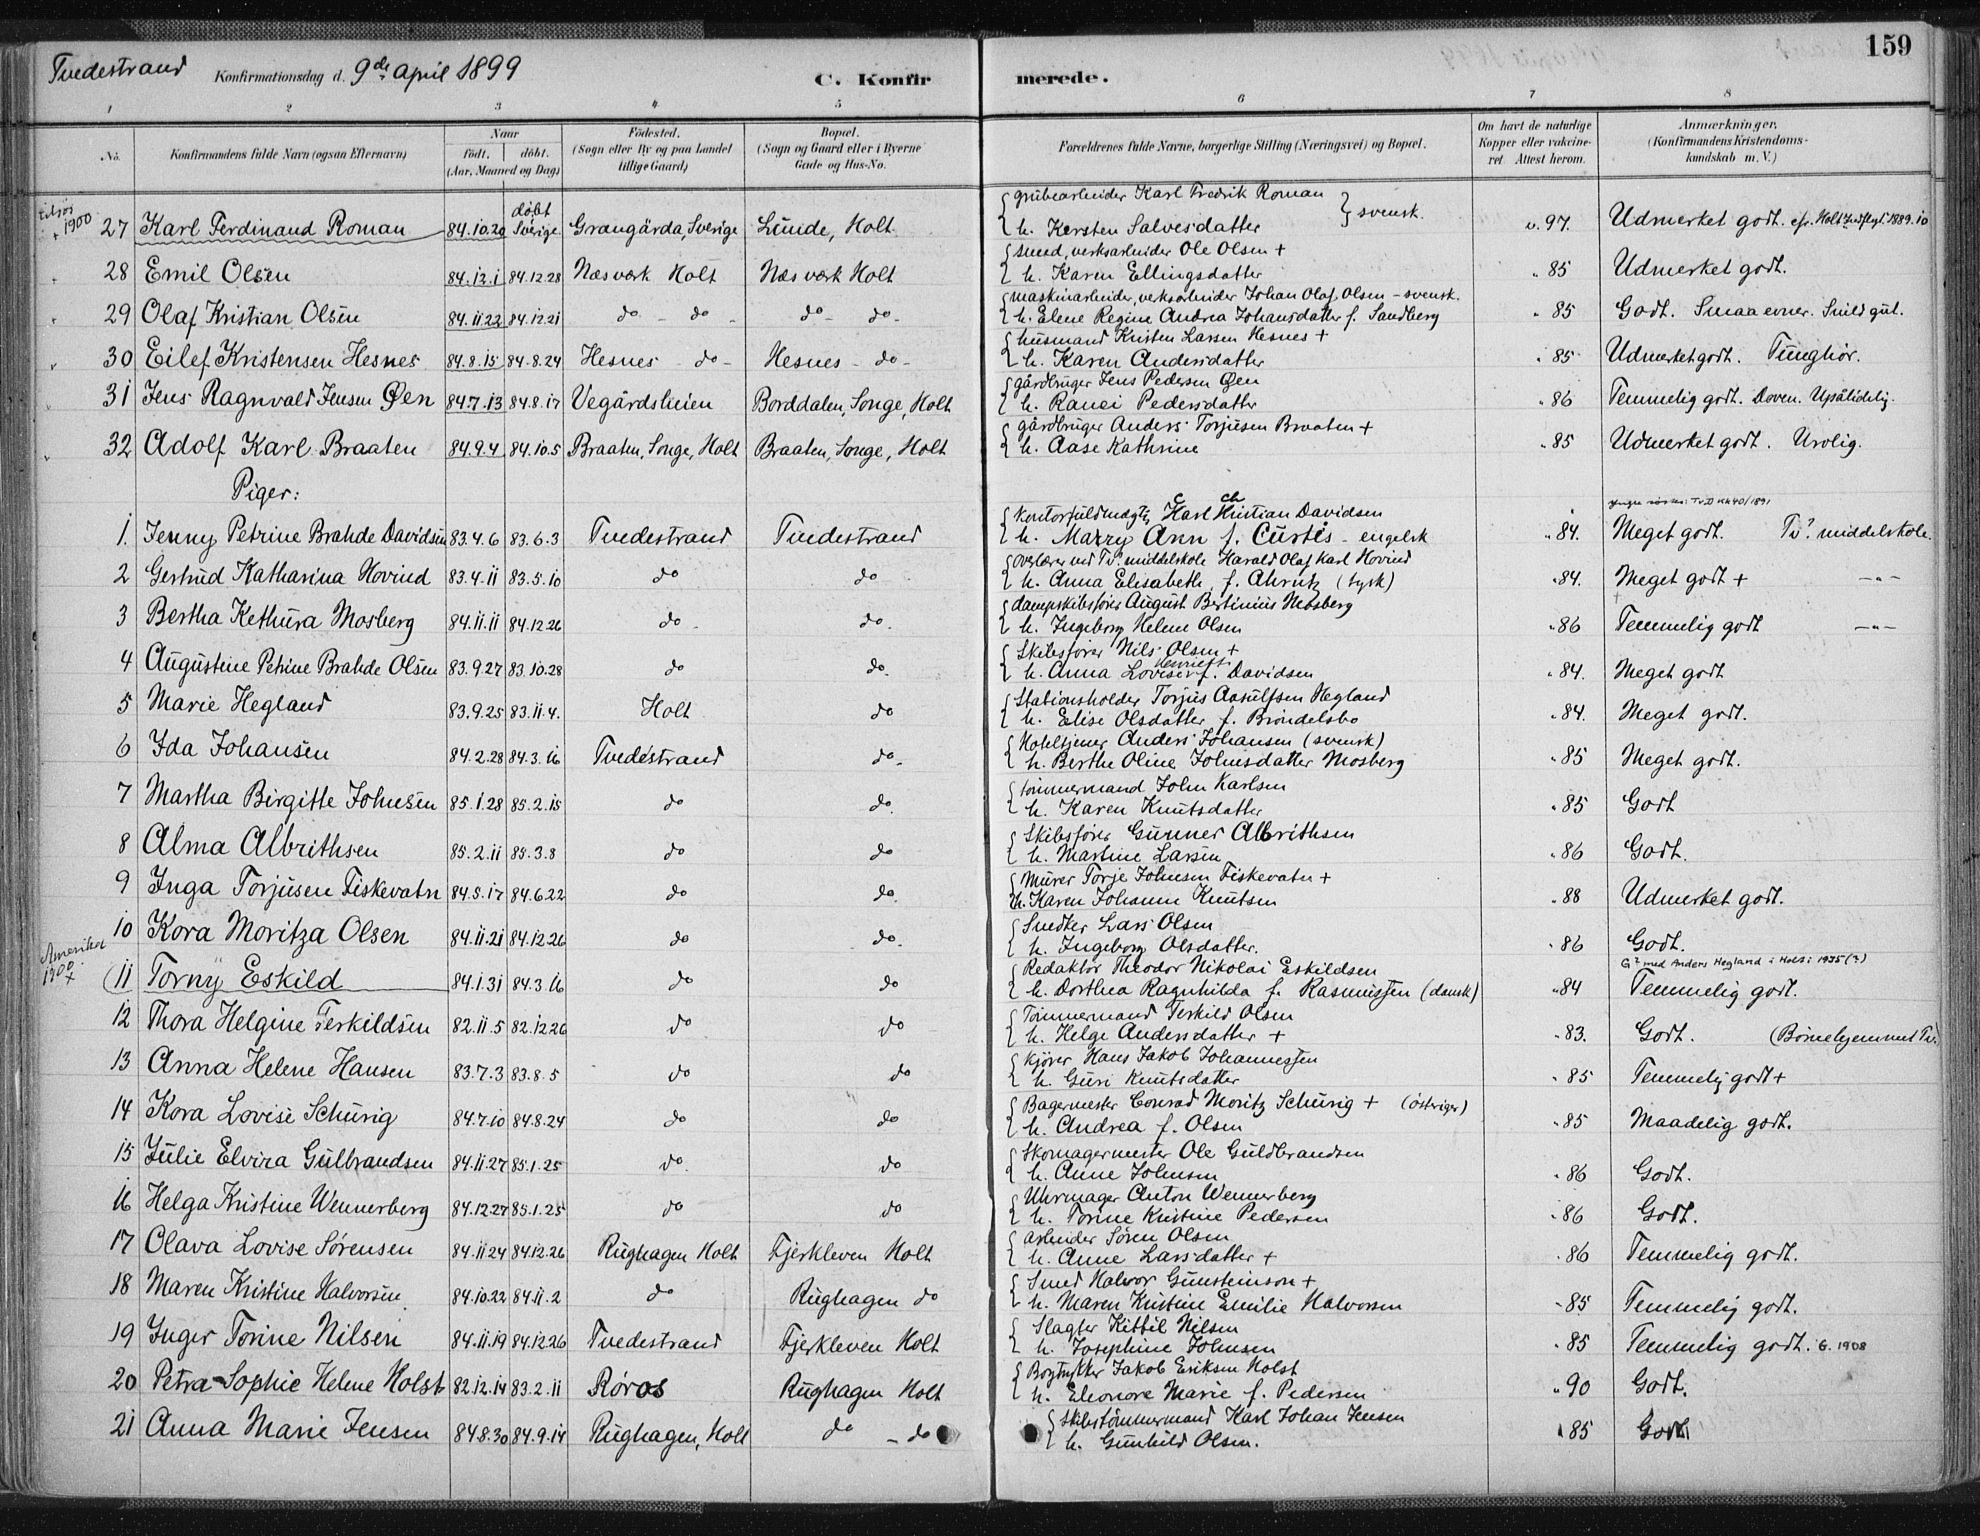 Tvedestrand Konfirmationsdag d. 9de april 1899 C. Konfirmerede. 159
1 2 3 4 5 6 7 8
No. Konfirmandens fulde Navn (ogsaa Efternavn) Naar födt. döbt. (Aar, Maaned og Dag) Födested. (Sogn eller By og paa Landet tillige Gaard) Bopæl. (Sogn og Gaard eller i Byerne Gade og Hus-No. Forældrenes fulde Navne, borgerlige Stilling (Næringsvei) og Bopæl. Om havt de naturlige Kopper eller vakcineret. Attest herom. Anmærkninger. (Konfirmandens Kristendomskundskab m. V.)
1900 + 27 Karl Ferdinand Roman 84.10.20 døbt Sverige Grangärda, Sverige Lunde, Holt { grubearbeider Karl Fredrik Roman
h. Kersten Salvesdatter } svensk. v. 97. Udmerket godt. cfr. Holt 1889.10
28 Emil Olsen 84.12.1 84.12.28 Næs værk Holt Næs værk Holt { smed, verksarbeider Ole Olsen +
h. Karen Ellingsdatter " 85 Udmerket godt.
29 Olaf Kristian Olsen 84.11.22 84.12.21 do - do - do - do - { maskinarbeider, verksarbeider Johan Olaf Olsen - svensk.
h. Elene Regine Andrea Johansdatter f. Sandberg " 85 Godt. Smaa evner. Snild gut.
30 Eilef Kristensen Hesnes 84.8.15 84.8.24 Hesnes - do - Hesnes - do - { husmand Kristen Larsen Hesnes +
h. Karen Andersdatter " 85 Udmerket godt. Tunghør.
31 Jens Ragnvald Jensen Øen 84.7.13 84.8.17 Vegårdsheien Borddalen, Songe, Holt { gårdbruger Jens Pedersen Øen
h. Ranei Pedersdatter " 86 Temmelig godt. Doven. Upålidelig.
32 Adolf Karl Braaten 84.9.4 84.10.5 Braaten, Songe, Holt Braaten, Songe, Holt { gårdbruger Anders Torjusen Braaten +
h. Aase Kathrine " 85 Udmerket godt. Urolig.
Piger:
1. Jenny Petrine Brahde Davidsen 83.4.6 83.6.3 Tvedestrand Tvedestrand { kontorfuldmægtg Karl Kristian Davidsen
h. Marry Ann f. Curtis - engelsk " 84. Meget godt. Tv? middelskole.
2 Gertrud Katharina Hovind 83.4.11 83.5.10 do do { overlærer ved Tv? middelskole Harald Olaf Karl Hovind
h. Anna Elisabeth f. Ahrntz (tysk) " 84. Meget godt + -"-
3 Bertha Kethura Mosberg 84.11.11 84.12.26 do. do. { dampskibsfører August Bertinius Mosberg
h. Ingeborg Helene Olsen " 86 Temmelig godt -"-
4 Augustine Petrine Brahde Olsen 83.9.27 83.10.28 do do. { Skibsfører Nils Olsen +
h. Anna Lovise Henriette f. Davidsen " 84. Meget godt
5 Marie Hegland 83.9.25 83.11.4. Holt do { Stationsholder Torjus Aasulfsen Hegland
h. Elise Olsdatter f. Brøndelsbo " 84. Meget godt.
6 Ida Johansen 84.2.28 84.3.16 Tvedestrand do. { Hoteltjener Anders Johansen (svensk)
h. Berthe Oline Johnsdatter Mosberg " 85 Meget godt.
7 Martha Birgitte Johnsen 85.1.28 85.2.15 do do. { tømmermand John Karlsen
h. Karen Knutsdatter " 85 Godt
8 Alma Albrithsen 85.2.11 85.3.8 do do { Skibsfører Gunner Albrithsen
h. Martine Larsen " 86 Godt.
9 Inga Torjusen Fiskevatn 84.5.17 84.6.22 do do. { Murer Torje Johnsen Fiskevatn +
h. Karen Johanne Knutsen " 88 Udmerket godt.
10 Kora Moritza Olsen 84.11.21 84.12.26 do do. { Snedker Lars Olsen
h. Ingeborg Olsdatter. " 86 Godt.
Amerika 1900 + (11 Torny Eskild 84.1.31 84.3.16 do do { Redaktør Theodor Nikolai Eskildsen
h. Dorthea Ragnhilda f. Rasmussen (dansk) " 84 G? med Anders Hegland i Holt i 1935 (?) Temmelig godt.
12 Thora Helgine Terkildsen 82.11.5 82.12.26 do do { Tømmermand Terkild Olsen
h. Helge Andersdatter + " 83. Godt. (Børnehjemmet Tv.)
13 Anna Helene Hansen 83.7.3 83.8.5 do do { Kjører Hans Jakob Johannessen
h. Guri Knutsdatter " 85 Temmelig godt +
14 Kora Lovise Schurig 84.7.10 84.8.24 do do { Bagermester Conrad Moritz Schurig + (østriger)
h. Andrea f. Olsen " 85 Maadelig godt.
15 Julie Elvira Gulbrandsen 84.11.27 85.1.25 do. do { Skomagermester Ole Guldbrandsen
h. Anne Johnsen " 86 Godt.
16 Helga Kristine Wennerberg 84.12.27 85.1.25 do do { Uhrmager Anton Wennerberg
h. Torine Kristine Pedersen " 86 Godt.
17 Olava Lovise Sørensen 84.11.24 84.12.26 Rughagen Holt Fjerkleven Holt { arbeider Søren Olsen
h. Anne Larsdatter + " 86 Temmelig godt.
18 Maren Kristine Halvorsen 84.10.22 84.11.2 do Rughagen do { Smed Halvor Gunsteinson +
h. Maren Kristine Emilie Halvorsen " 85 Temmelig godt.
19 Inger Torine Nilsen 84.11.19 84.12.26 Tvedestrand Fjerkleven Holt { Slagter Kittil Nilsen
h. Josephine Johnsen " 85 Temmelig godt. G. 1908
20 Petra Sophie Helene Holst 82.12.14 83.2.11 Røros Rughagen Holt { Bogtrykker Jakob Eriksen Holst
h. Eleonore Marie f. Pedersen " 90 Godt.
21 Anna Marie Jensen 84.8.30 84.9.14 Rughagen, Holt do - do { Skibstømmermand Karl Johan Jensen
h. Gunhild Olsen. " 85 Godt